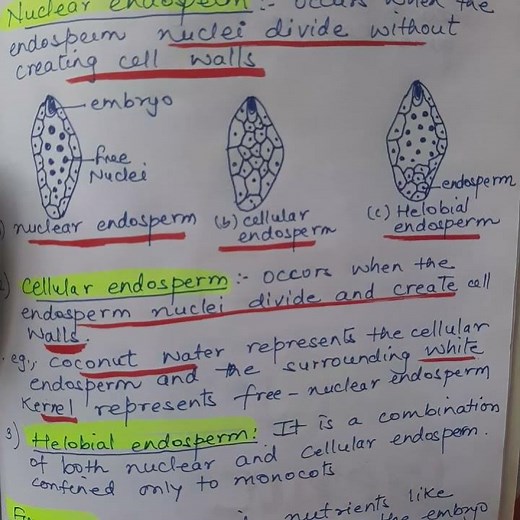 Nuclear endosperm :- occurs when the
endosperm nuclei divide without
creating cell walls
embryo
free
Nuclei
endosperm
nuclear endosperm
(b) cellular
endosperm
(c) Helobial
endosperm
Cellular endosperm :- occurs when the
endosperm nuclei divide and create cell
walls.
eg., coconut water represents the cellular
endosperm and the surrounding white
Kernel represents free-nuclear endosperm
3) Helobial endosperm: It is a combination
of both nuclear and cellular endosperm.
confined only to monocots
nutrients like
the embryo